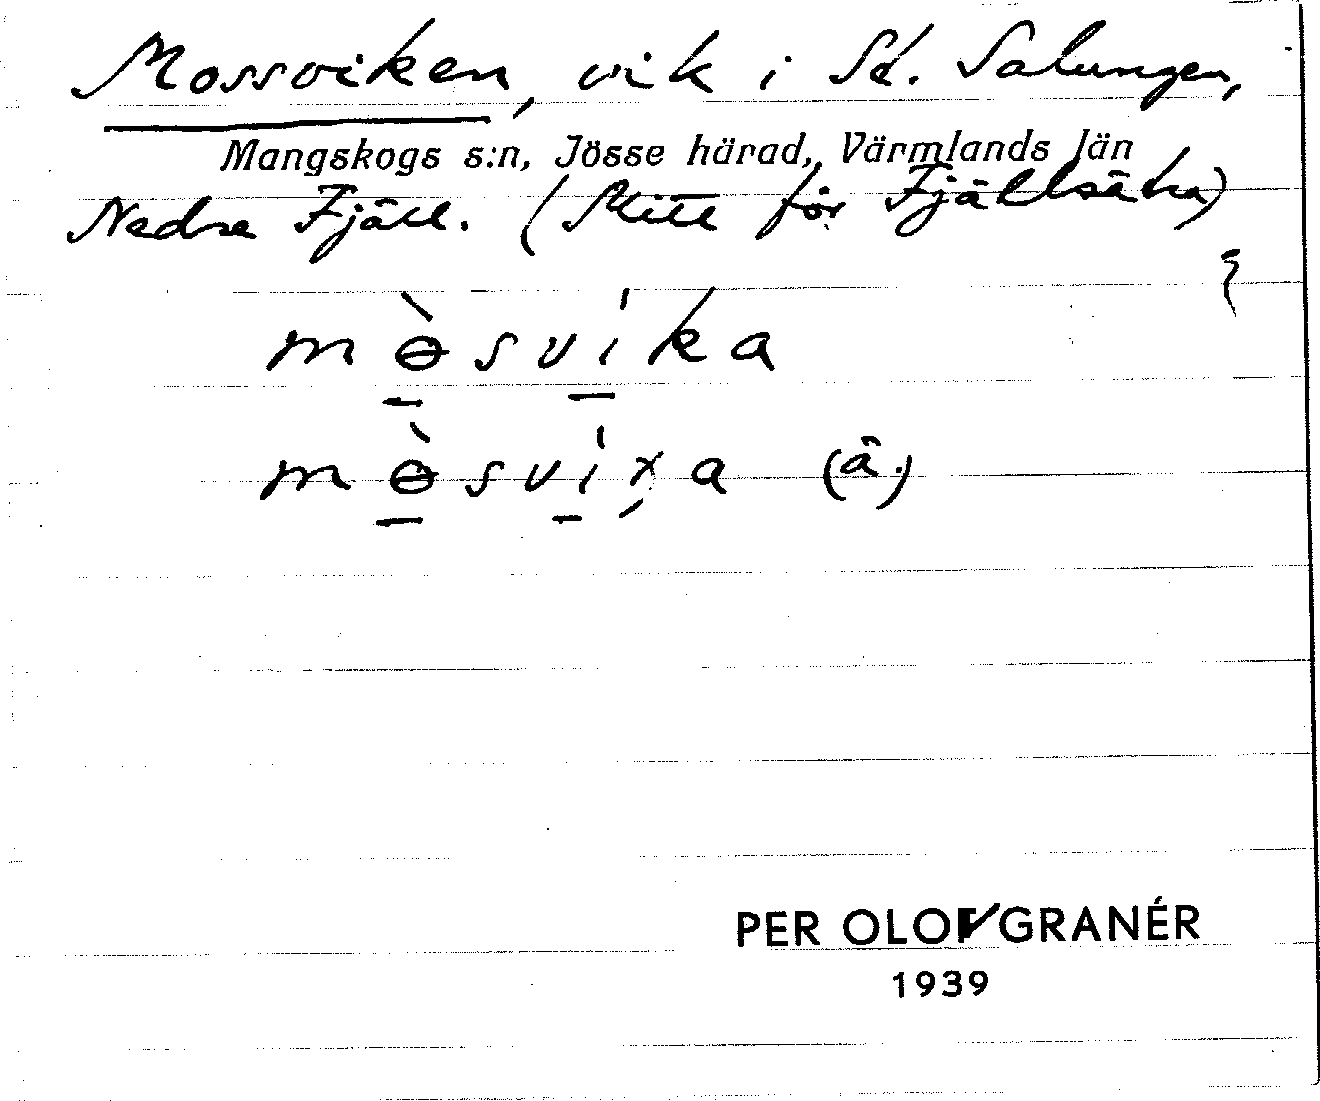 Mossviken, vik i Sd. Salungen,
Mangskogs s:n, Jösse härad, Värmlands län
Nedre Fjäll. (Mitt för Fjällsäter)
mɵ̀svika
mɵ̀svix̦a (ä.)
PER OLOV GRANÉR
1939